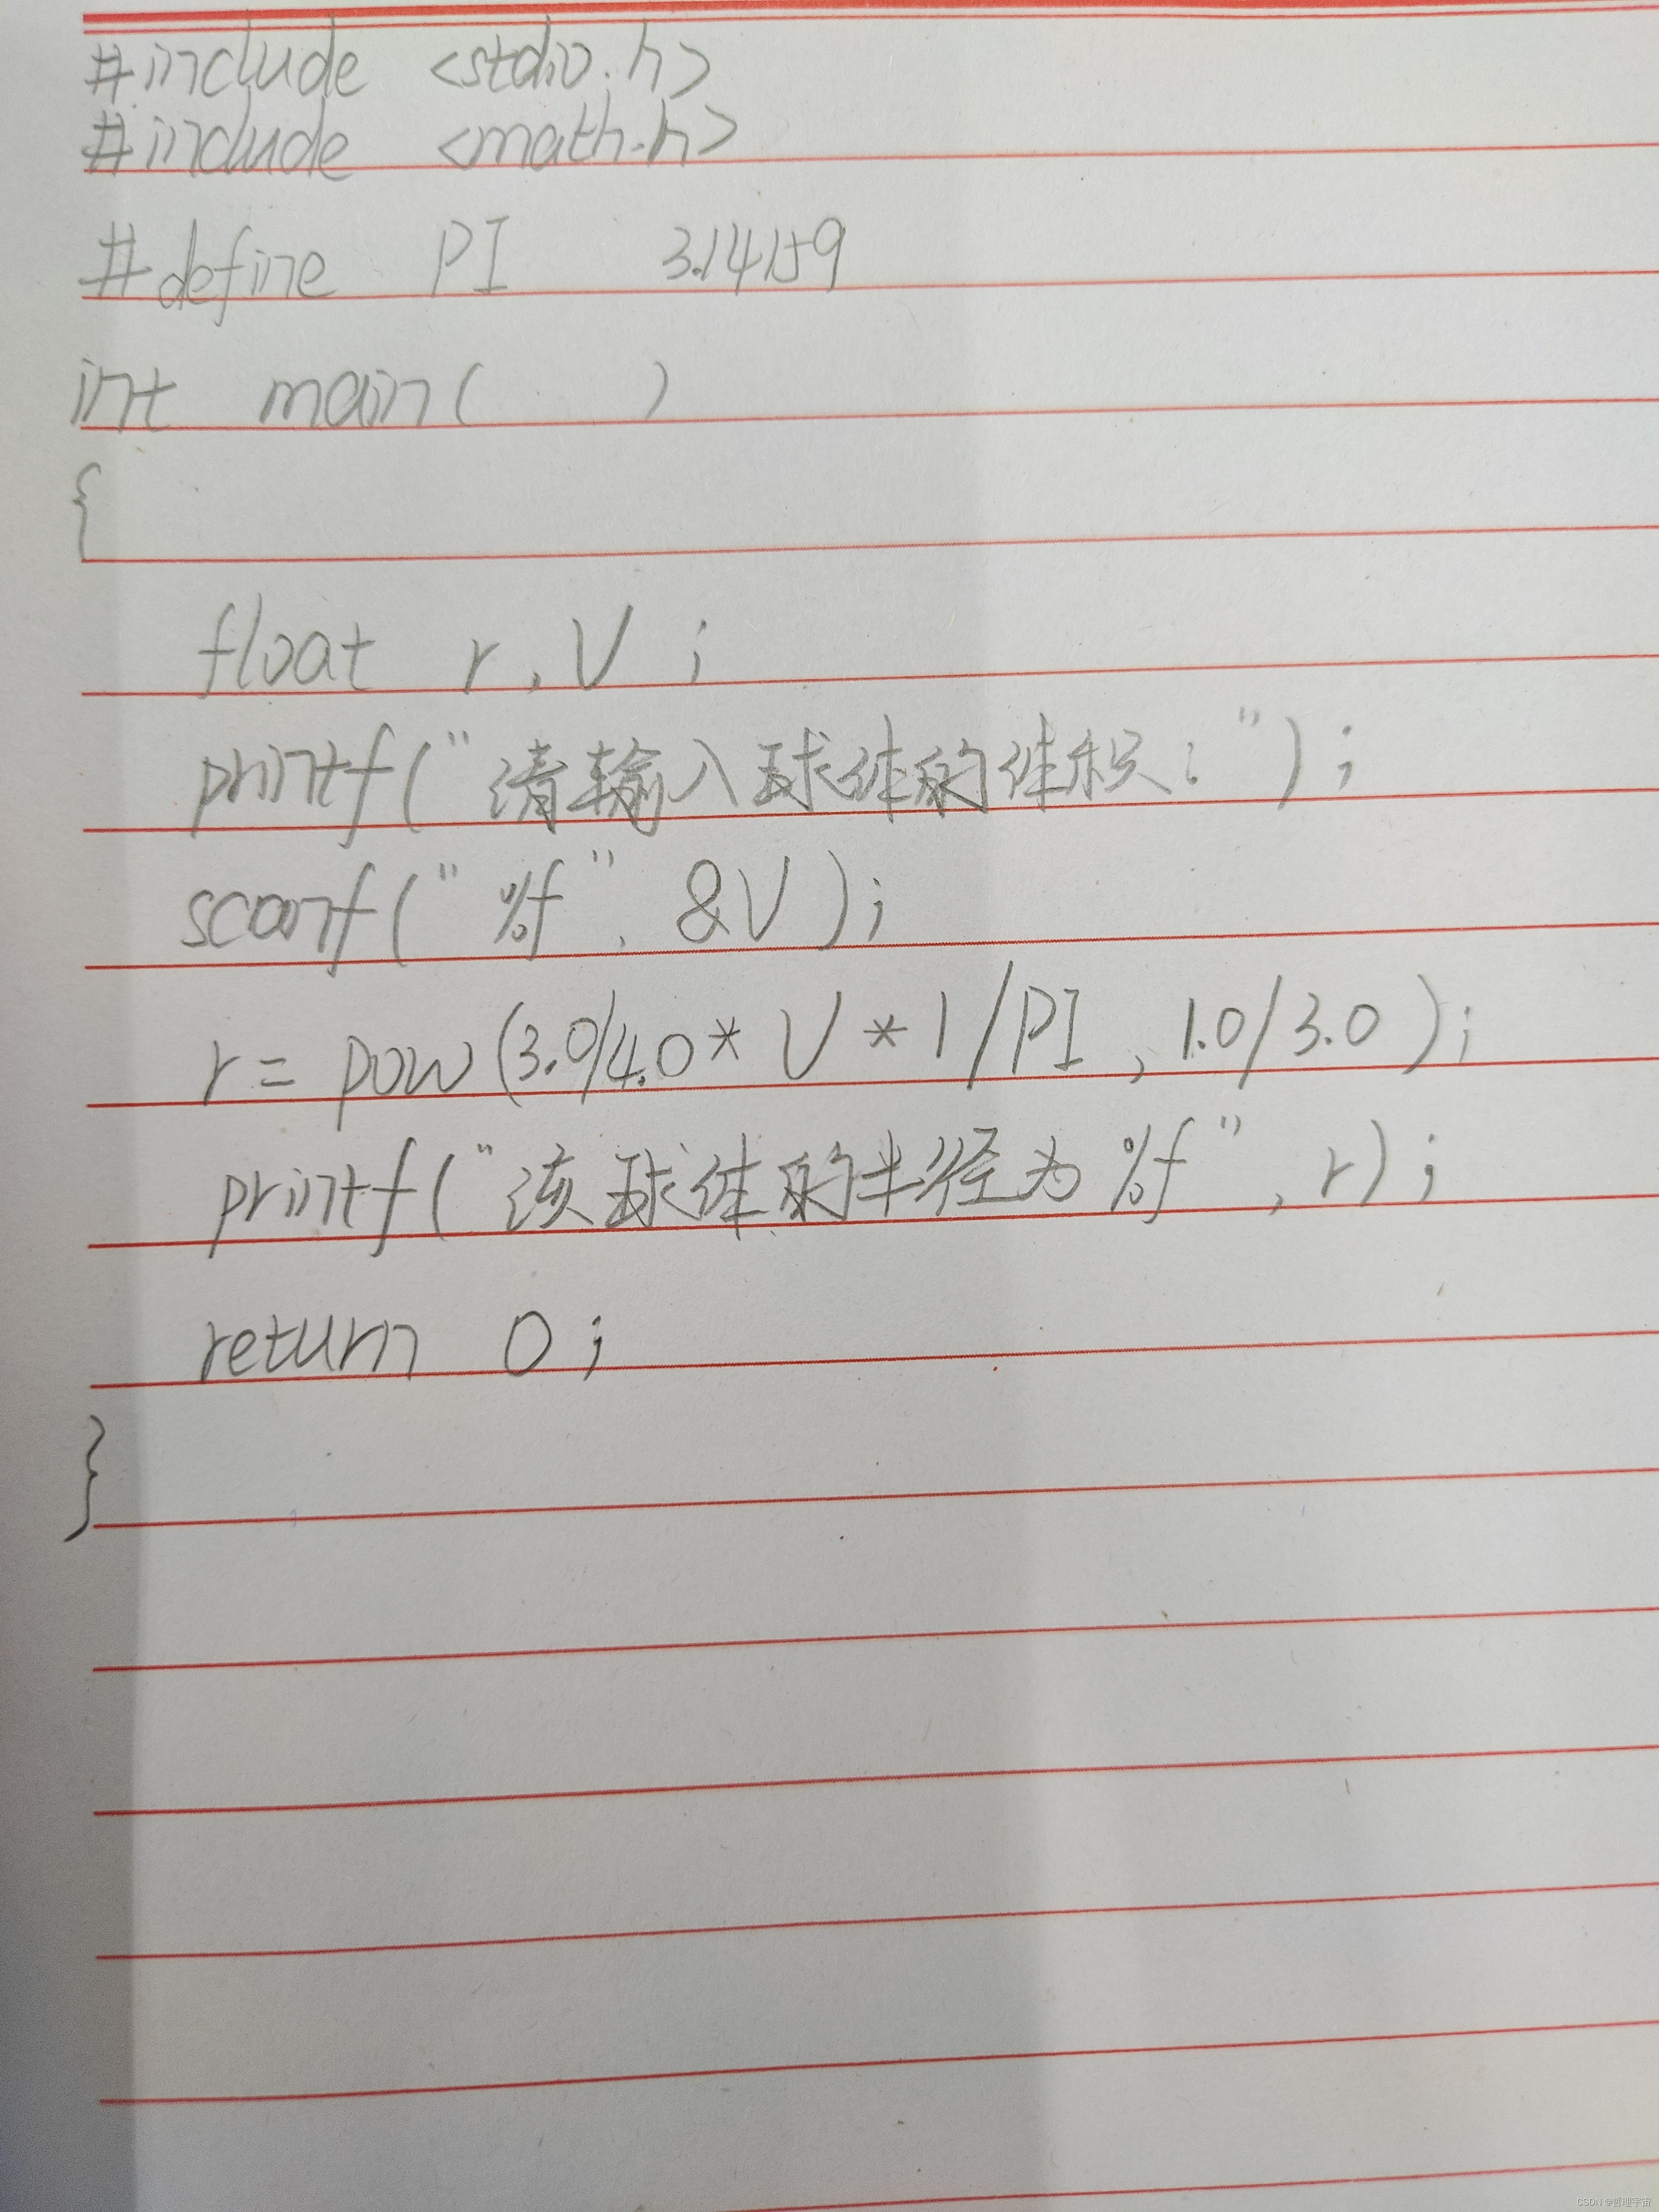 #include <stdio.h>
#include <math.h>
#define PI 3.14159
int main( )
{
float r,V;
printf("请输入球体的体积:");
scanf("%f",&V);
r=pow(3.0/4.0*V*1/PI,1.0/3.0);
printf("该球体的半径为%f",r);
return 0;
}
CSDN @哲理宇宙